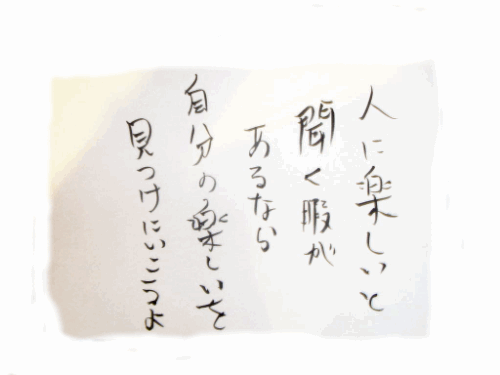 人に楽しいと
聞く暇が
あるなら
自分の楽しいを
見つけにいこうよ